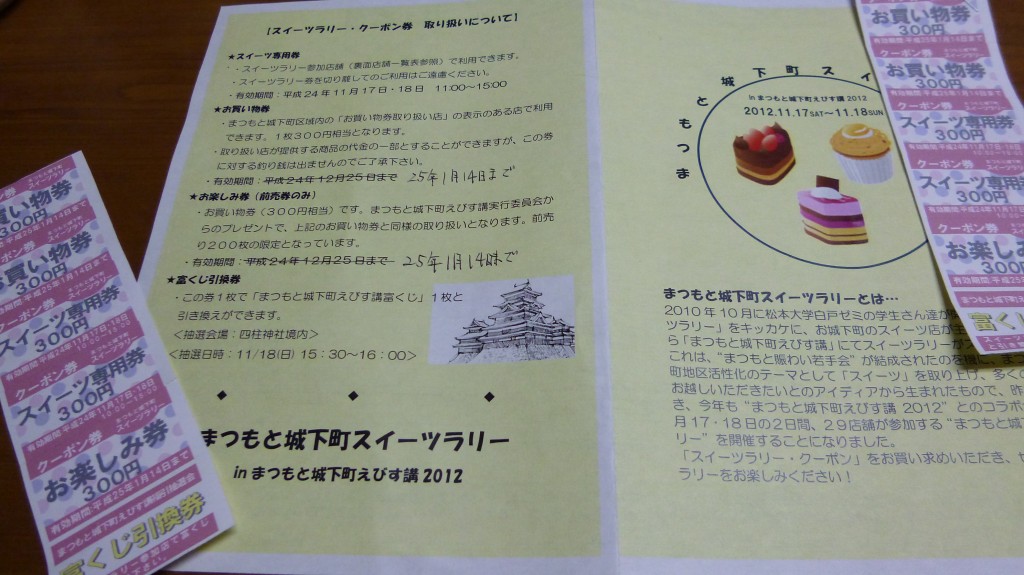 【スイーツラリー・クーポン券 取り扱いについて】
★スイーツ専用券
・スイーツラリー参加店舗(裏面店舗一覧表参照)で利用できます。
・スイーツラリー券を切り離してのご利用はご遠慮ください。
・有効期間:平成24年11月17日・18日 11:00~15:00
★お買い物券
・まつもと城下町区域内の「お買い物券取り扱い店」の表示のある店で利用
できます。1枚300円相当となります。
・取り扱い店が提供する商品の代金の一部とすることができますが、この券
に対する釣り銭は出ませんのでご了承下さい。
・有効期間:平成24年12月25日まで 25年1月14日まで
★お楽しみ券(前売券のみ)
・お買い物券(300円相当)です。まつもと城下町えびす講実行委員会か
らのプレゼントで、上記のお買い物券と同様の取り扱いとなります。前売
り200枚の限定となっています。
・有効期間:平成24年12月25日まで 25年1月14日まで
★富くじ引換券
・この券1枚で「まつもと城下町えびす講富くじ」1枚と
引き換えができます。
<抽選会場:四柱神社境内>
<抽選日時:11/18(日) 15:30~16:00>
◆ ◆ ◆
まつもと城下町スイーツラリー
in まつもと城下町えびす講2012
まつもと城下町スイ
in まつもと城下町えびす講2012
2012.11.17SAT~11.18SUN
まつもと城下町スイーツラリーとは…
2010年10月に松本大学白戸ゼミの学生さん達が
ツラリー」をキッカケに、お城下町のスイーツ店が
ら「まつもと城下町えびす講」にてスイーツラリーが
これは、“まつもと賑わい若手会”が結成されたのを機に、まつ
町地区活性化のテーマとして「スイーツ」を取り上げ、多くの
お越しいただきたいとのアイディアから生まれたもので、昨
き、今年も“まつもと城下町えびす講 2012”とのコラボ
月17・18日の2日間、29店舗が参加する“まつもと城
リー”を開催することになりました。
「スイーツラリー・クーポン」をお買い求めいただき、
ラリーをお楽しみください!
買い物券
300円
1月14日まで
お買い物券
300円
有効期間:平成25年1月14日まで
クーポン券
スイーツ専用券
300円
有効期間:平成24年11月17日・18日
クーポン券
スイーツ専用券
300円
有効期間:平成24年11月17日・18日
クーポン券
お楽しみ券
300円
有効期間:平成25年1月14日まで
まつもと城下町えびす講富くじ抽選会
富くじ引換券
お買い物券
300円
有効期間:平成25年1月14日まで
クーポン券
お買い物券
300円
クーポン券
スイーツ専用券
300円
有効期間:平成24年11月17日・18日
クーポン券
スイーツ専用券
300円
有効期間:平成24年11月
クーポン券
お楽しみ
300円
有効期間:平成25年1
まつもと城下町えびす
富くじ